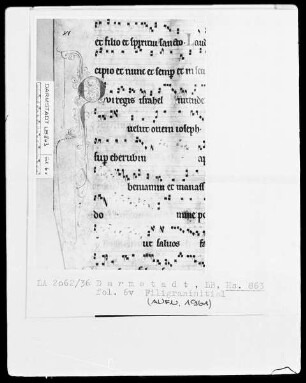 et filio et spiritui sancto
cipio et nunc et semp et in secu
Qui regis israhel intende
velut ovem ioseph
sup cherubin ap
beniamin et manass
do nunc po
ut salvos
DARMSTADT LHB 863
DA 2062/36 Darmstadt, LB, Hs. 863
fol. 6v Filigraninitial
(AUFN. 1961)